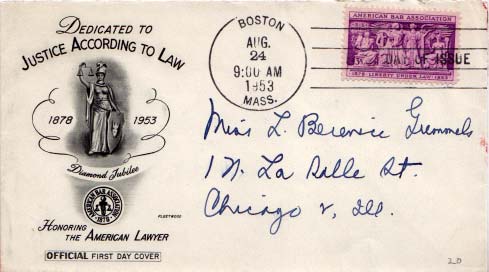 DEDICATED TO
JUSTICE ACCORDING TO LAW
1878 1953
Diamond Jubilee
AMERICAN BAR ASSOCIATION
1878
FLEETWOOD
HONORING
THE AMERICAN LAWYER
OFFICIAL FIRST DAY COVER
BOSTON
AUG.
24
9:00 AM
1953
MASS.
AMERICAN BAR ASSOCIATION
DAY OF ISSUE
1878 LIBERTY UNDER LAW 1953
Miss L. Berenice Gremmels
1 N. La Salle St.
Chicago 2, Ill.